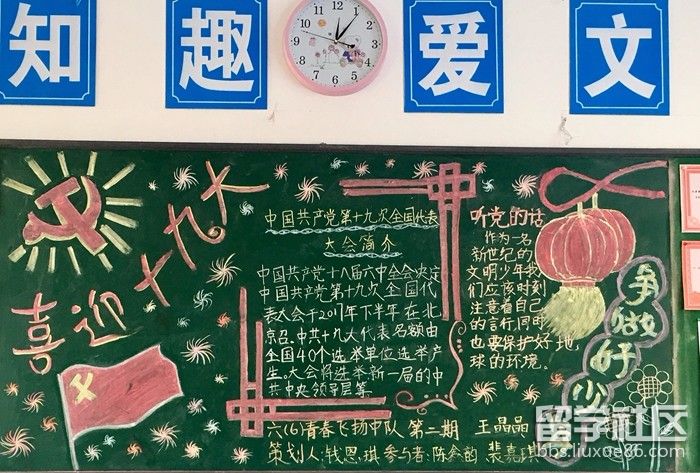 知 趣 爱 文
12 1 2 3 4 5 6 7 8 9 10 11
喜迎十九大
中国共产党第十九次全国代表
大会简介
中国共产党十八届六中全会决定
中国共产党第十九次全国代
表大会于2017年下半年在北
京召.中共十九大代表名额由
全国40个选举单位选举产
生.大会将选举新一届的中
共中央领导层等.
听党的话
作为一名
新世纪的
文明少年我
们应该时刻
注意着自己
的言行,同时
也要保护好地
球的环境。
争做好少
六(6)青春飞扬中队 第二期
策划人:钱恩琪 参与者:陈鑫韵
王晶晶
裴嘉琪
留学社区
bbs.liuxue86.com